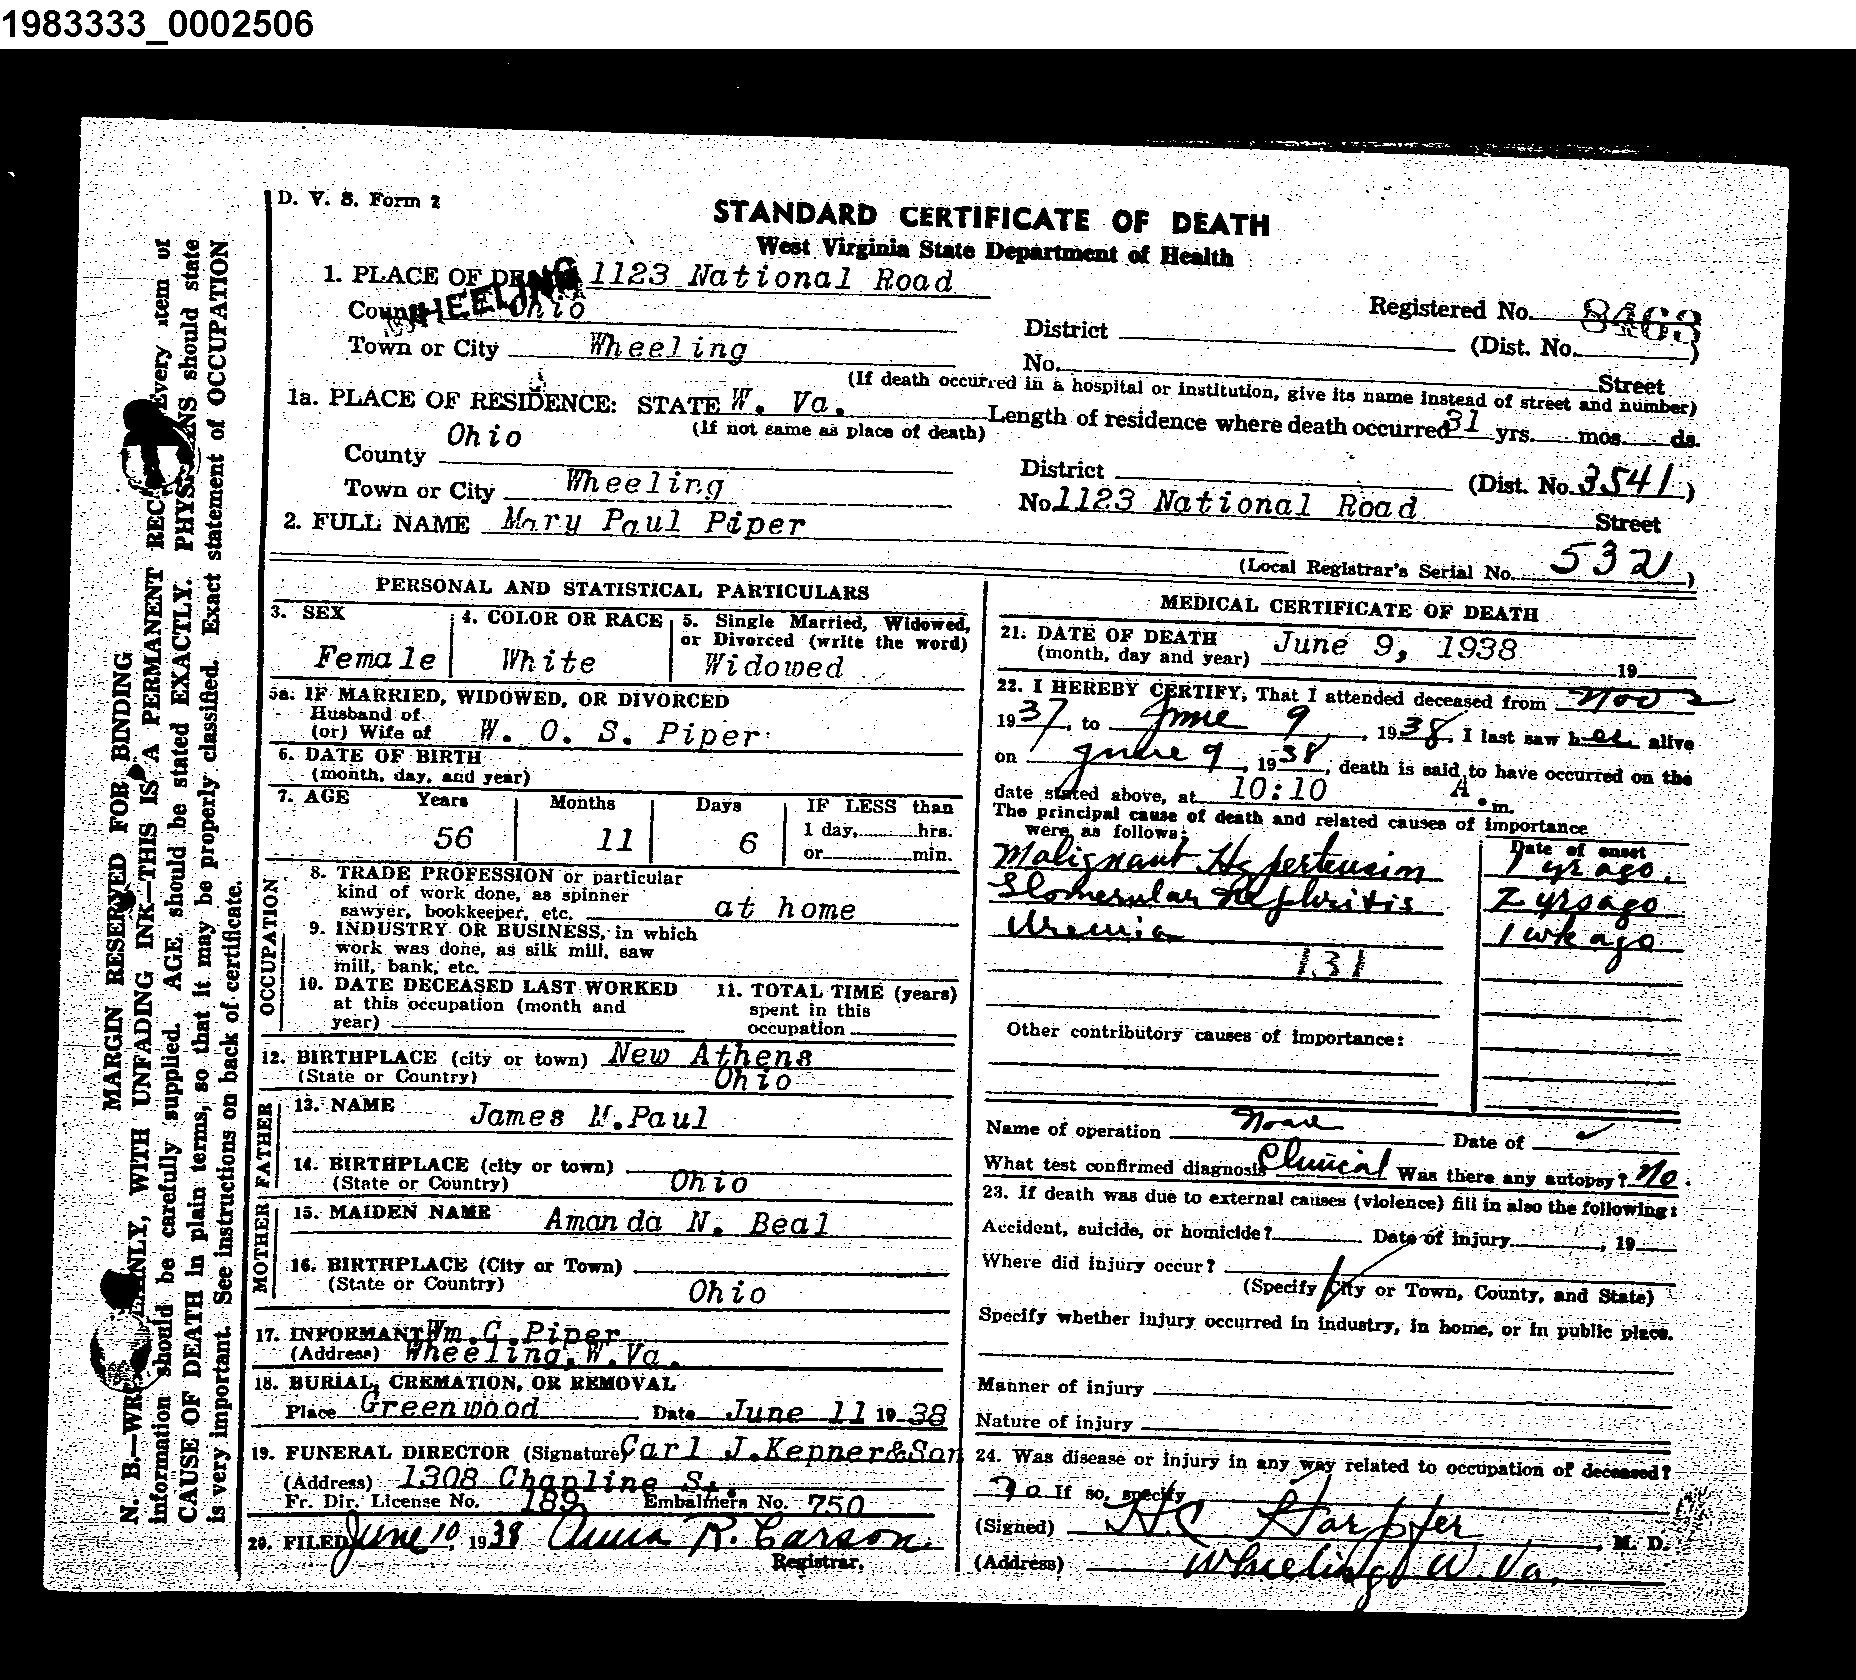 1983333_0002506
D. V. S. Form 2
STANDARD CERTIFICATE OF DEATH
West Virginia State Department of Health
1. PLACE OF 1123 National Road
WHEELING
County Ohio
Registered No. 8463
District (Dist. No. )
Town or City Wheeling
No. Street
(If death occurred in a hospital or institution, give its name instead of street and number)
1a. PLACE OF RESIDENCE: STATE W. Va.
(If not same as place of death)
Length of residence where death occurred 31 yrs. mos. ds.
County Ohio
District (Dist. No. 3541)
Town or City Wheeling
No. 1123 National Road Street
2. FULL NAME Mary Paul Piper
(Local Registrar's Serial No. 532)
PERSONAL AND STATISTICAL PARTICULARS
3. SEX
Female
4. COLOR OR RACE
White
5. Single Married, Widowed,
or Divorced (write the word)
Widowed
5a. IF MARRIED, WIDOWED, OR DIVORCED
Husband of
(or) Wife of W. O. S. Piper
6. DATE OF BIRTH
(month, day, and year)
7. AGE Years Months Days IF LESS than
1 day, hrs.
56 11 6
or min.
OCCUPATION
8. TRADE PROFESSION or particular
kind of work done, as spinner
sawyer, bookkeeper, etc. at home
9. INDUSTRY OR BUSINESS, in which
work was done, as silk mill, saw
mill, bank, etc.
10. DATE DECEASED LAST WORKED
at this occupation (month and
year)
11. TOTAL TIME (years)
spent in this
occupation
12. BIRTHPLACE (city or town) New Athens
(State or Country) Ohio
FATHER
13. NAME James M. Paul
14. BIRTHPLACE (city or town)
(State or Country) Ohio
MOTHER
15. MAIDEN NAME Amanda N. Beal
16. BIRTHPLACE (City or Town)
(State or Country) Ohio
17. INFORMANT Wm. C. Piper
(Address) Wheeling, W. Va.
18. BURIAL, CREMATION, OR REMOVAL
Place Greenwood Date June 11 1938
19. FUNERAL DIRECTOR (Signature) Carl J. Kepner & Son
(Address) 1308 Chapline St.
Fr. Dir. License No. 189 Embalmers No. 750
20. FILED June 10, 1938 Anna R. Carson
Registrar.
MEDICAL CERTIFICATE OF DEATH
21. DATE OF DEATH June 9, 1938
(month, day and year) 19
22. I HEREBY CERTIFY, That I attended deceased from Nov 2
1937, to June 9, 1938, I last saw her alive
on June 9, 1938, death is said to have occurred on the
date stated above, at 10:10 A. m.
The principal cause of death and related causes of importance
were as follows:
Date of onset
Malignant Hypertension 1 yr ago.
Glomerular Nephritis 2 yrs ago
Uremia 1 wk ago
131
Other contributory causes of importance:
Name of operation None Date of
What test confirmed diagnosis Clinical Was there any autopsy? No.
23. If death was due to external causes (violence) fill in also the following:
Accident, suicide, or homicide? Date of injury , 19
Where did injury occur?
(Specify City or Town, County, and State)
Specify whether injury occurred in industry, in home, or in public place.
Manner of injury
Nature of injury
24. Was disease or injury in any way related to occupation of deceased?
no If so, specify
(Signed) H C Harpfer, M. D.
(Address) Wheeling W. Va.
MARGIN RESERVED FOR BINDING
N. B.—WRITE PLAINLY, WITH UNFADING INK—THIS IS A PERMANENT RECORD. Every item of
information should be carefully supplied. AGE should be stated EXACTLY. PHYSICIANS should state
CAUSE OF DEATH in plain terms, so that it may be properly classified. Exact statement of OCCUPATION
is very important. See instructions on back of certificate.